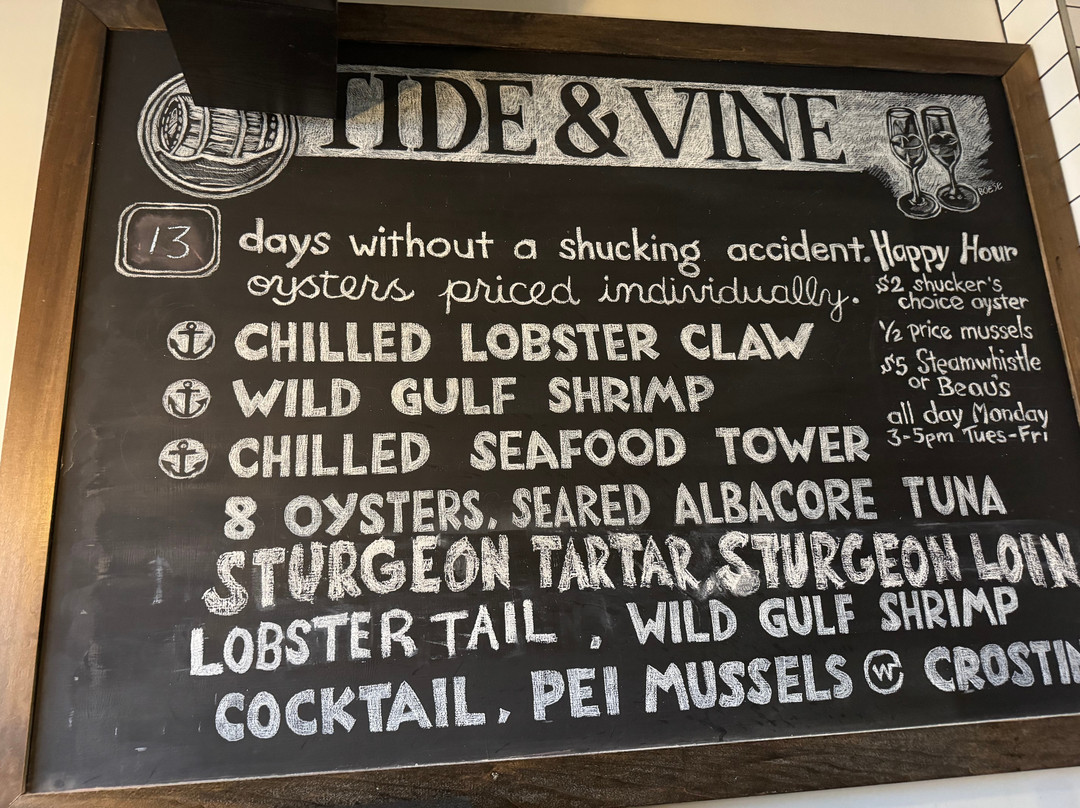 TIDE & VINE
BOESE
13 days without a shucking accident.
oysters priced individually.
CHILLED LOBSTER CLAW
WILD GULF SHRIMP
CHILLED SEAFOOD TOWER
8 OYSTERS, SEARED ALBACORE TUNA
STURGEON TARTAR STURGEON LOIN
LOBSTER TAIL, WILD GULF SHRIMP
COCKTAIL, PEI MUSSELS W CROSTIN
Happy Hour
$2 shucker's
choice oyster
1/2 price mussels
$5 Steamwhistle
or Beau's
all day Monday
3-5pm Tues-Fri